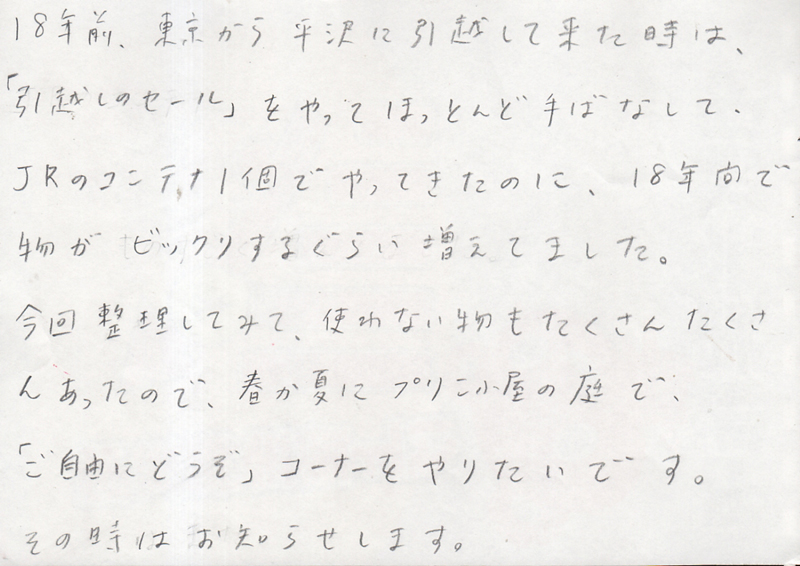 18年前、東京から平沢に引越して来た時は、
「引越しのセール」をやってほっとんど手ばなして、
JRのコンテナ1個でやってきたのに、18年間で
物がビックリするぐらい増えてました。
今回整理してみて、使わない物もたくさんたくさ
んあったので、春か夏にプリン小屋の庭で、
「ご自由にどうぞ」コーナーをやりたいです。
その時はお知らせします。